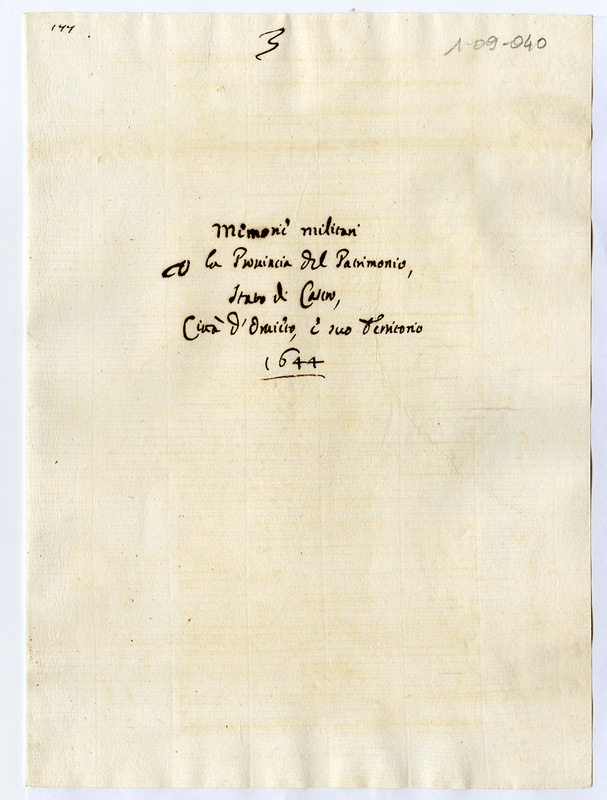 177
3
1-09-040
Memorie militari
P la Prouincia del Patrimonio,
Stato di Castro,
Città d'Oruieto, è suo Territorio
1644